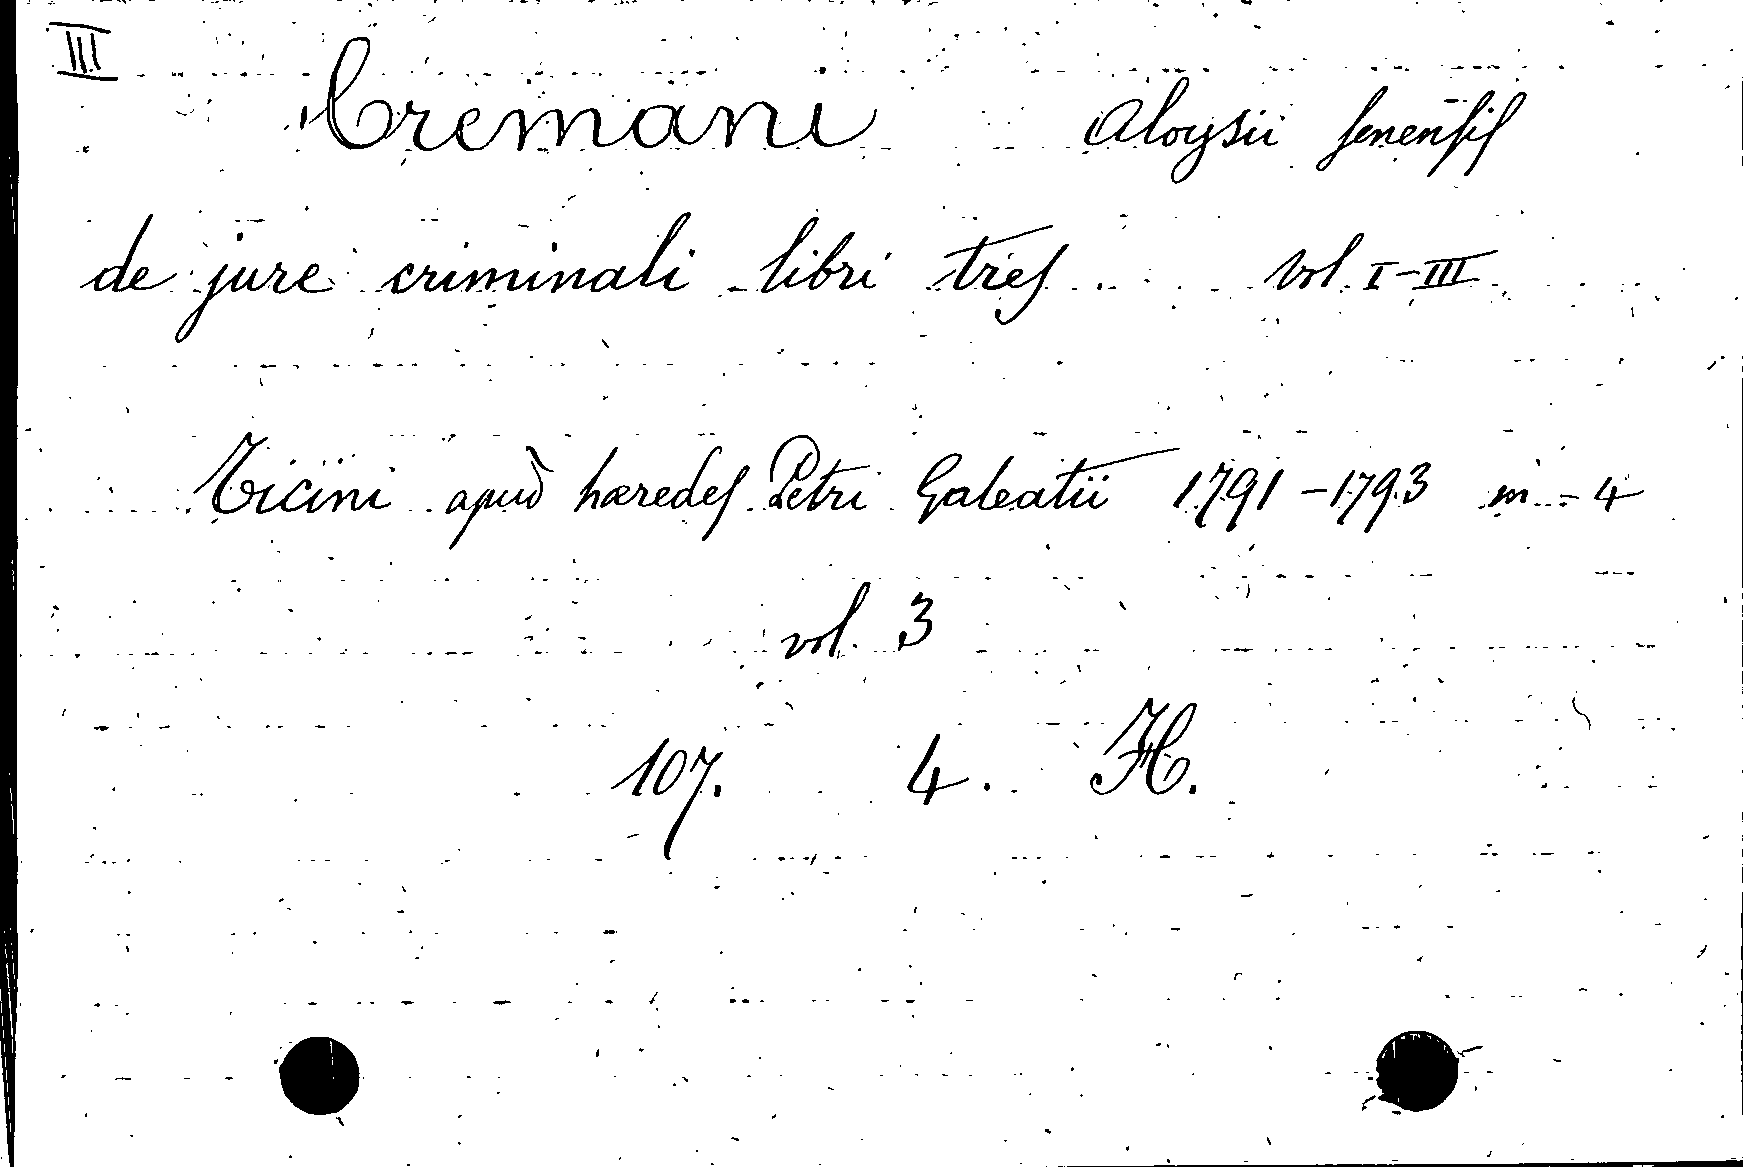 III
Cremani Aloysii senensis
de jure criminali libri tres vol I-III
Ticini apud hæredes Petri Galeatii 1791-1793 in-4
vol. 3
107. 4. H.